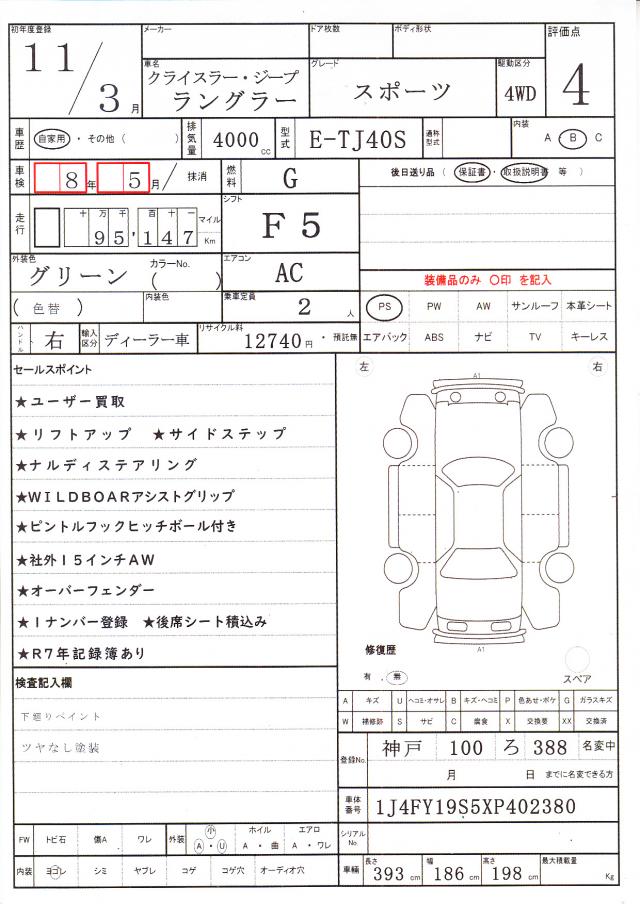 初年度登録 メーカー ドア枚数 ボディ形状 評価点
11/3月
車名 クライスラー・ジープ ラングラー
グレード スポーツ
駆動区分 4WD
4
車歴 自家用・その他( )
排気量 4000cc
型式 E-TJ40S
通称型式
内装 A B C
車検 8年5月/抹消
燃料 G
後日送り品( 保証書・取扱説明書 等 )
走行 十万千百十一 95,147 マイル Km
シフト F5
外装色 グリーン カラーNo. ( )
エアコン AC
装備品のみ 〇印 を記入
( 色替 ) 内装色
乗車定員 2人
PS PW AW サンルーフ 本革シート
ハンドル 右
輸入区分 ディーラー車
リサイクル料 12740円・預託無
エアバック ABS ナビ TV キーレス
セールスポイント
★ユーザー買取
★リフトアップ ★サイドステップ
★ナルディステアリング
★WILDBOARアシストグリップ
★ピントルフックヒッチボール付き
★社外15インチAW
★オーバーフェンダー
★1ナンバー登録 ★後席シート積込み
★R7年記録簿あり
左 右
A1
A1
修復歴
有 . 無
スペア
検査記入欄
下廻りペイント
ツヤなし塗装
A キズ U ヘコミ・オサレ B キズ・ヘコミ P 色あせ・ボケ G ガラスキズ
W 補修跡 S サビ C 腐食 X 交換要 XX 交換済
登録No. 神戸 100 ろ 388 名変中
月 日 までに名変できる方
車体番号 1J4FY19S5XP402380
シリアルNo.
FW トビ石 傷A ワレ 外装 小 A・U ホイル A・曲 エアロ A・ワレ
内装 ヨゴレ シミ ヤブレ コゲ コゲ穴 オーディオ穴
車輌 長さ 393cm 幅 186cm 高さ 198cm 最大積載量 Kg